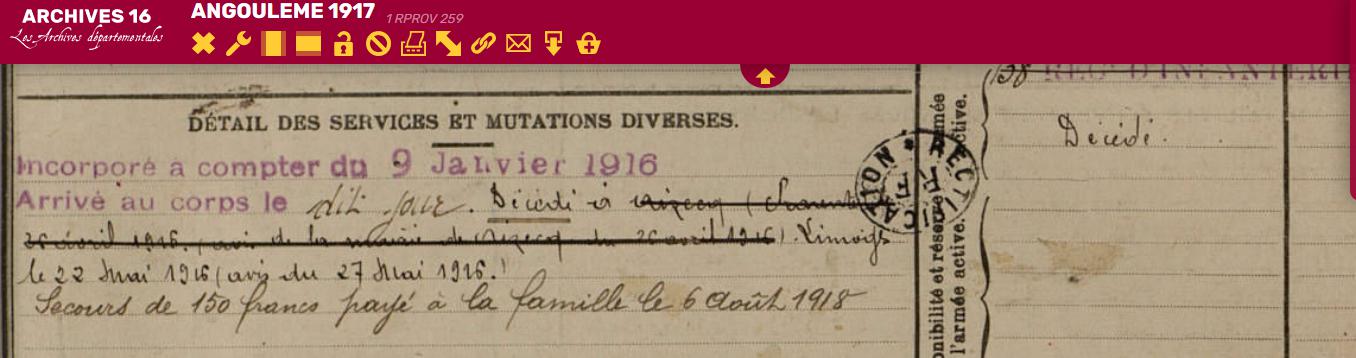 ARCHIVES 16
Les Archives départementales
ANGOULEME 1917 1 RPROV 259
138 REG. D'INFANTERIE
DÉTAIL DES SERVICES ET MUTATIONS DIVERSES.
Incorporé à compter du 9 Janvier 1916
Arrivé au corps le dit jour. Décédé à (Charente
26 avril 1916. (avis de la mairie de du 26 avril 1916) Limoges
le 22 Mai 1916 (avis du 27 Mai 1916.)
Secours de 150 francs payé à la famille le 6 Août 1918
RECTIFICATION
Décédé.
onibilité et réserve
armée
l'armée active.
ctive.